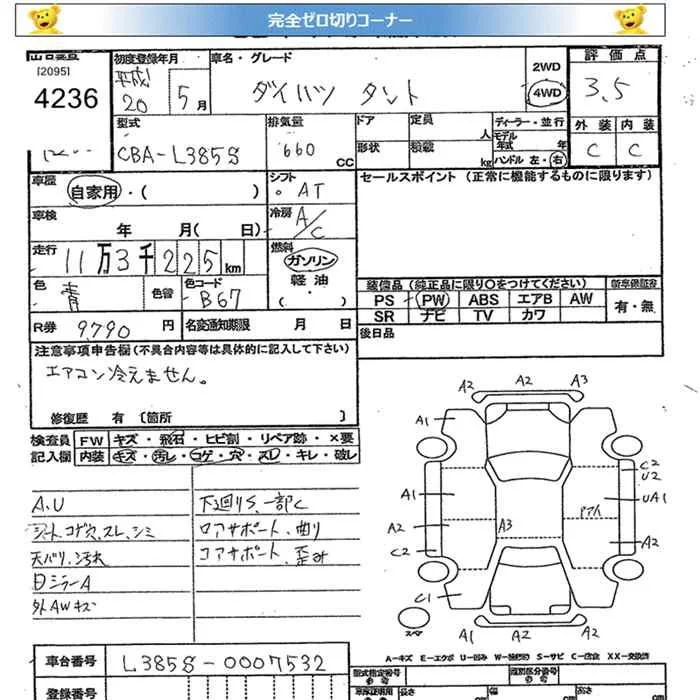 完全ゼロ切りコーナー
[2095]
4236
初度登録年月
平成
20 5月
車名・グレード
ダイハツ タント
2WD
4WD
評価点
3.5
型式
CBA-L385S
排気量
660 CC
ドア
形状
定員
人
積載
kg
ディーラー・並行
モデル
年式 年
ハンドル 左・右
外装 内装
C C
車歴
自家用・( )
シフト
AT
セールスポイント (正常に機能するものに限ります)
車検
年 月( 日)
冷房
A/C
走行
11万3千225km
燃料
ガソリン
軽油
( ・ )
色
青
色替
色コード
B67
装備品 (純正品に限り○をつけてください)
PS PW ABS エアB AW
SR ナビ TV カワ
新車保証書
有・無
R券 9790 円
名変通知期限 月 日
後日品
注意事項申告欄(不具合内容等は具体的に記入して下さい)
エアコン冷えません。
修復歴 有 〔箇所 〕
検査員
記入欄
FW キズ・飛石・ヒビ割・リペア跡・×要
内装 キズ・汚レ・コゲ・穴・スレ・キレ・破レ
A.U
シートコゲ穴、スレ、シミ
天バリ汚れ
日ミラーA
外AWキズ
下廻りS、一部C
ロアサポート、曲り
コアサポート、歪み
A2 A2 A3
A1
C2
U2
A1
UA1
ドア内
A2
A3
A2
C2
C1
スペア
A1 A2 A2
A-キズ E-エクボ U-凹み W-補修跡 S-サビ C-腐食 XX-交換済
車台番号
L385S-0007532
登録番号
型式指定番号
類別区分番号
長さ cm
幅 cm
高さ cm